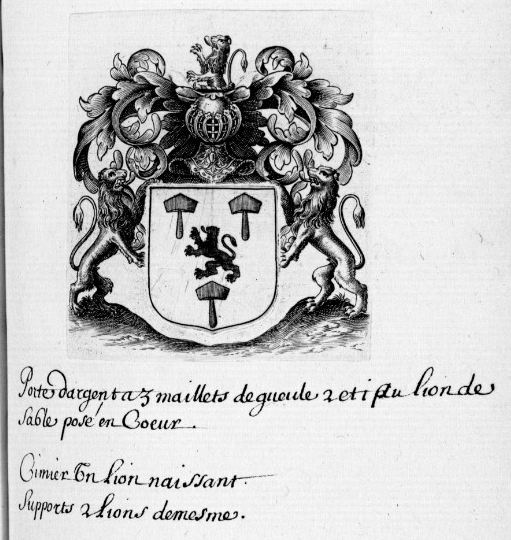 Porte d'argent a 3 maillets de gueule 2 et 1 lion de
sable posé en Coeur.
Cimier Un lion naissant
Supports 2 lions demesme.